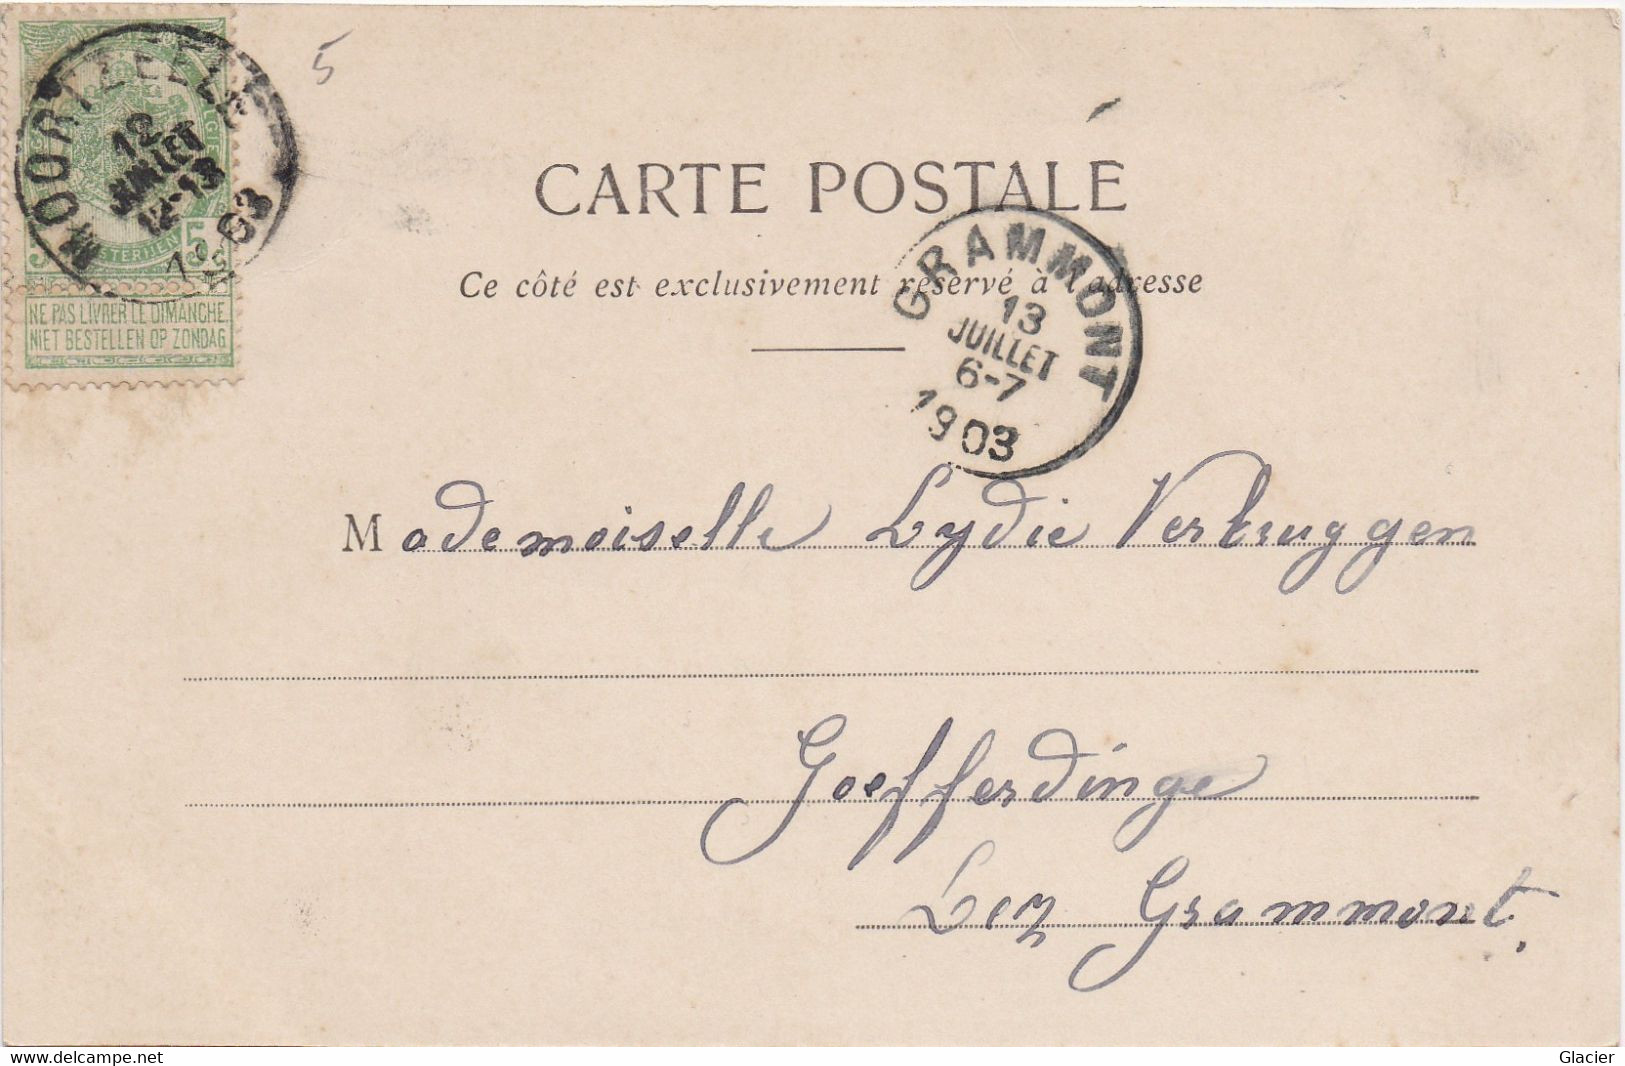 5
MOORTZEELE
12
JUILLET
12-13
1903
5
5
NE PAS LIVRER LE DIMANCHE
NIET BESTELLEN OP ZONDAG
CARTE POSTALE
Ce côté est exclusivement réservé à l'adresse
GRAMMONT
13
JUILLET
6-7
1903
Mademoiselle Lydie Verbruggen
Goefferdinge
Lez Grammont.
www.delcampe.net
Glacier